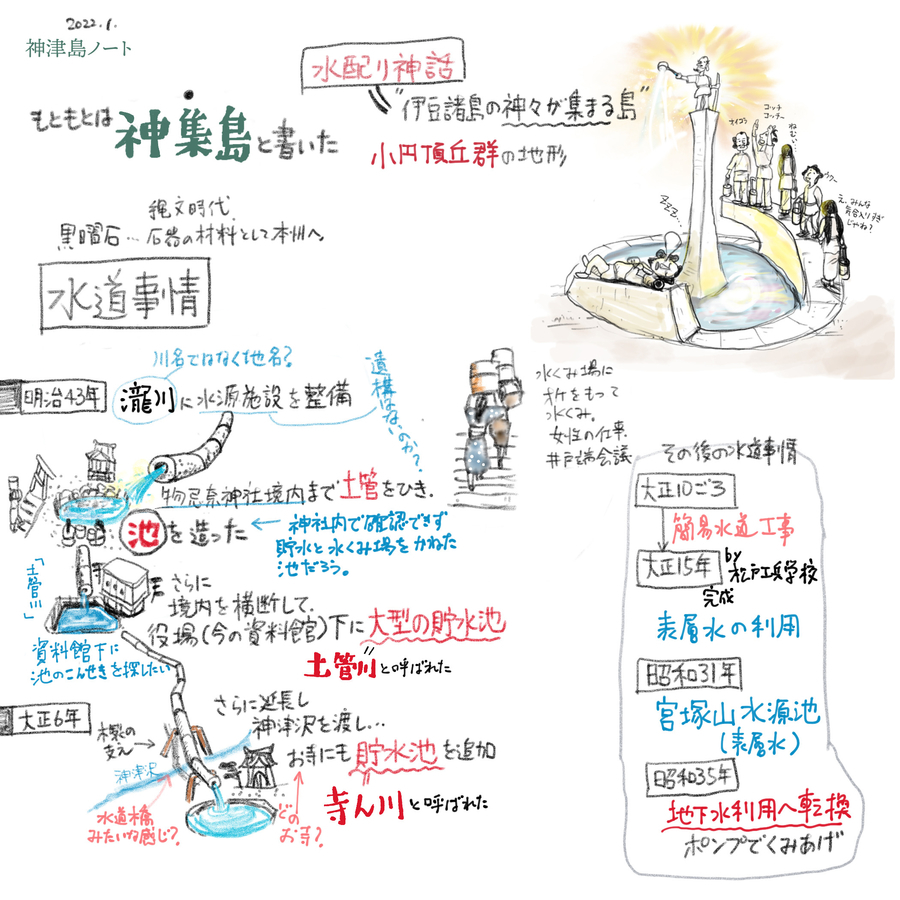 2022.1.
神津島ノート
水配り神話
"伊豆諸島の神々が集まる島"
もともとは神集島と書いた
小円頂丘群の地形
コッチ
コッチー
マイゴラ
ねむい
ウクー
え、みんな
気合入りすぎ
じゃね?
ZZZ...
縄文時代
黒曜石…石器の材料として本州へ
水道事情
川名ではなく地名?
明治43年
瀧川に水源施設を整備
遺構はないのか?
物忌奈神社境内まで土管をひき、
池を造った
神社内で確認できず
貯水と水くみ場をかねた
池だろう。
「土管川」
さらに
境内を横断して、
役場(今の資料館)下に大型の貯水池
土管川と呼ばれた
資料館下に
池のこんせきを探したい
大正6年
さらに延長し
神津沢を渡し…
木製の
支え→
お寺にも貯水池を追加
神津沢
寺ん川と呼ばれた
水道橋
みたいな感じ?
どの
お寺?
水くみ場に
オケをもって
水くみ。
女性の仕事
井戸端会議
その後の水道事情
大正10ごろ
簡易水道工事
大正15年
by
松戸工兵学校
完成
表層水の利用
昭和31年
宮塚山水源池
(表層水)
昭和35年
地下水利用へ転換
ポンプでくみあげ